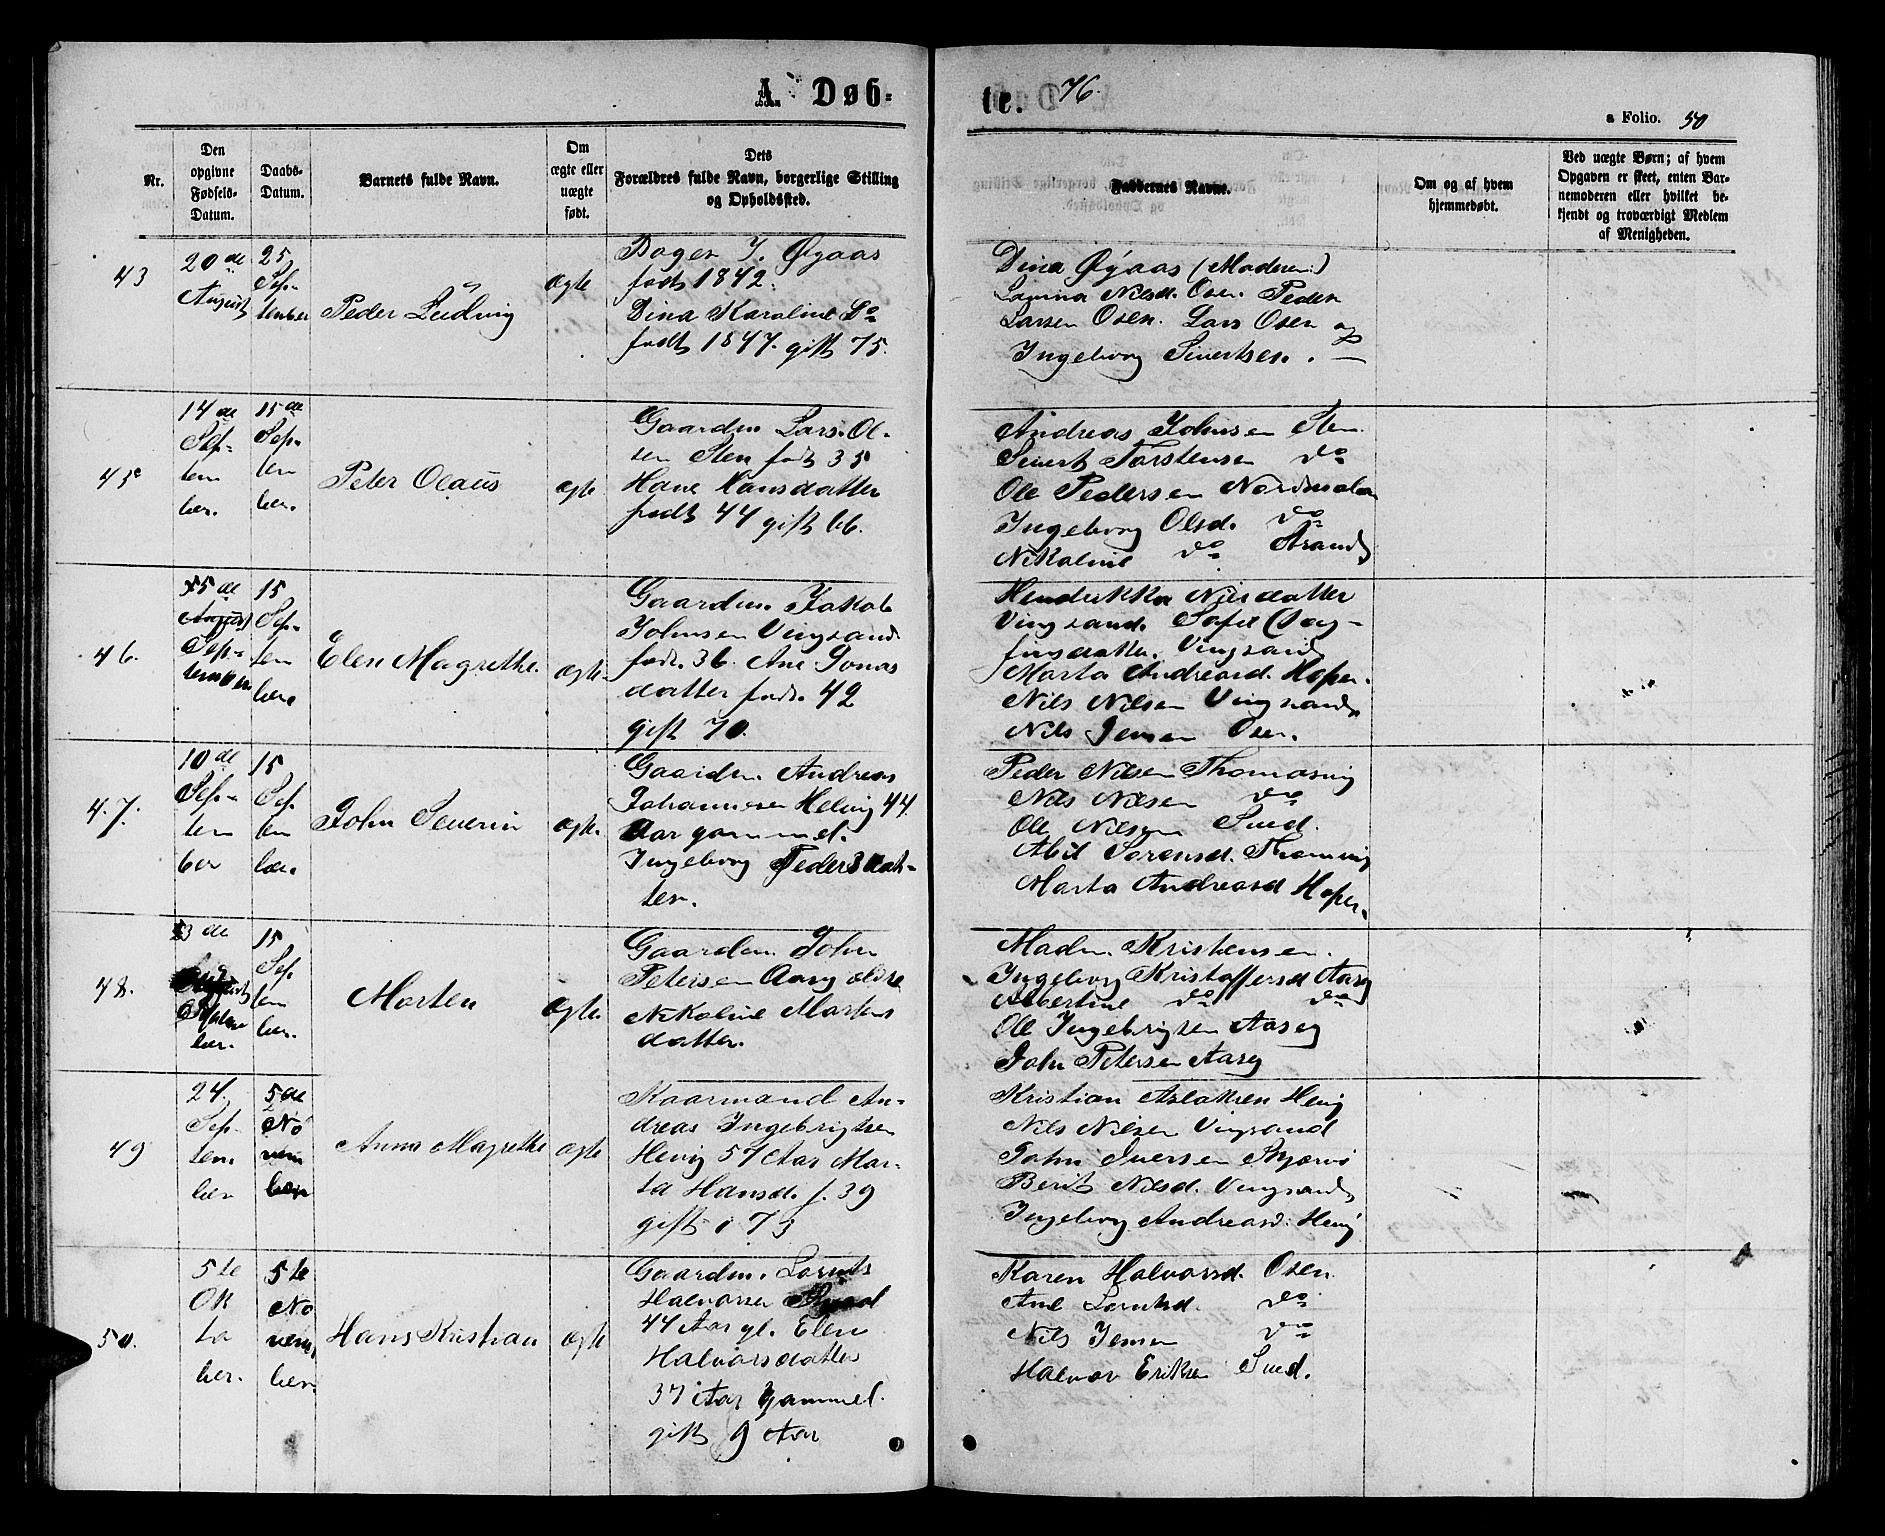 A. Døb-
te. 76.
a Folio. 50
Nr.
Den opgivne Fødsels-Datum.
Daabs-Datum.
Barnets fulde Navn.
Om ægte eller uægte født.
Dets Forældres fulde Navn, borgerlige Stilling og Opholdssted.
Faddernes Navne.
Om og af hvem hjemmedøbt.
Ved uægte Børn; af hvem Opgaven er skeet, enten Barnemoderen eller hvilket bekjendt og troværdigt Medlem af Menigheden.
43
20de
August
25
Sep-
tember
Peder Ludvig
Ægte
J. Øyaas
født 1842.
Dina Karoline Do
født 1847. gift 75.
Dina Øyaas (Moderen)
Nilsd. Osen. Peder
Larsen Osen. Lars Osen og
Ingeborg Sivertsen.
45
14de
Sep-
tem
ber.
15de
Sep-
tem
ber.
Peter Olaus
Ægte
Gaardm. Lars Ol-
sen Sten født 35
Hane Hansdatter
født 44 gift 66.
Andreas Johnsen Sten.
Sivert Torstensen do
Ole Pedersen
Ingeborg Olsd. do
Nikoline do Strand
46.
5de
August
Sep-
tember
15
Sep-
tem
ber.
Elen Magrethe.
Ægte.
Gaardm. Jakob
Johnsen Vingsand
født. 36. Ane Jonas
datter født. 42
gift 70.
Hendrikka Nilsdatter
Vingsand. Sofie Dag-
finsdatter. Vingsand
Marta Andreasd. Hopen.
Nils Nilsen Vingsand
Nils Jensen Osen.
47.
10de
Sep-
tem
ber
15
Sep.
tem
ber.
John Severin
Ægte.
Gaardm. Andreas
Johannesen Hevig 44
Aar gammel.
Ingeborg Pedersdat-
ter.
Peder Nilsen Thomasvig
Nils Nilsen do
Ole Nilsen Sund.
Abel Sørensd. Thomvig
Marta Andreasd Hopen.
48.
3de
August
ber.
15
Sep.
tem
ber.
Morten
Ægte.
Gaardm. John
Petersen Aarg ældre
Nikoline Mortens
datter.
Madm. Kristensen.
Ingeborg Kristoffersd Aarg
Albertine do do
Ole Ingebrigtsen Aarg
John Petersen Aarg
49
24.
Sep-
tem.
ber
5de
No
vem
ber
Anna Magrethe
Ægte
Kaarmand An-
dreas Ingebrigtsen
Hevig 57 Aar Mar-
ta Hansd. f. 39
gift i 73
Kristian Aslaksen Hevig
Nils Nilsen Vingsand
John Iversen Skjærvø
Berit Nilsd. Vingsand
Ingeborg Andreasd. Hevig
50.
5te
Ok
to
ber.
5te
No
vem,
ber.
Hans Kristian
Ægte
Gaardm. Lornts
Halvorsen
44 Aar gl. Elen
Halvorsdatter
37 Aar gammel.
gift 9 Aar
Karen Halvorsd. Osen.
Ane Lorntsd. do
Nils Jensen do
Halvor Eriksen Sund.